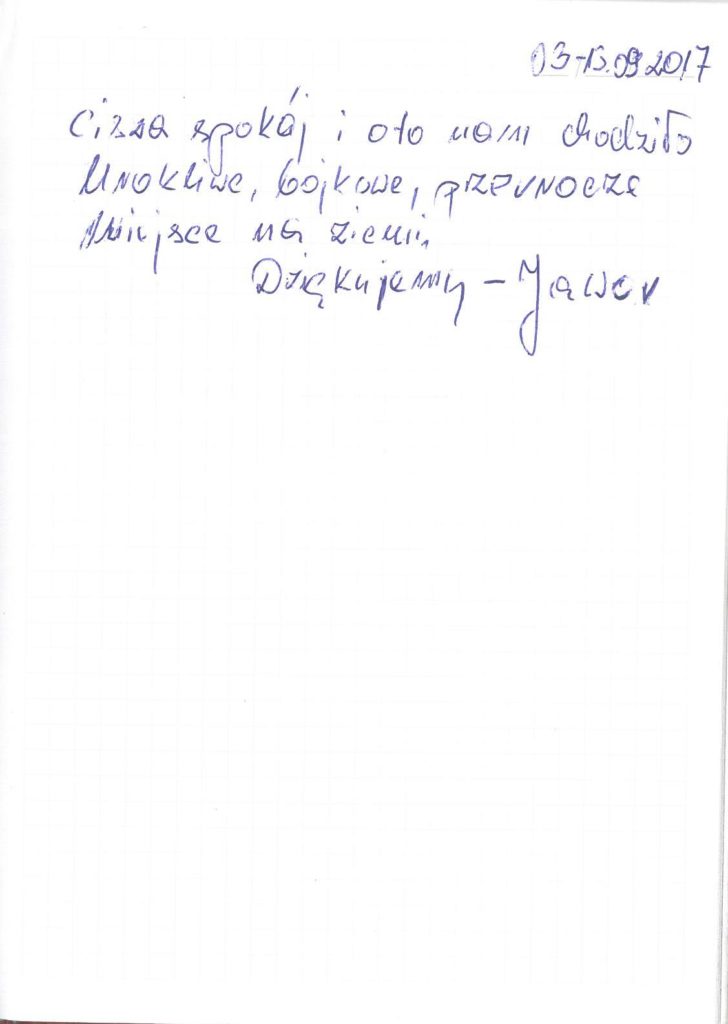 03-13.09.2017
Cisza spokój i oto nam chodziło
Urokliwe, bajkowe, przeurocze
Miejsce na ziemi.
Dziękujemy – Jawor